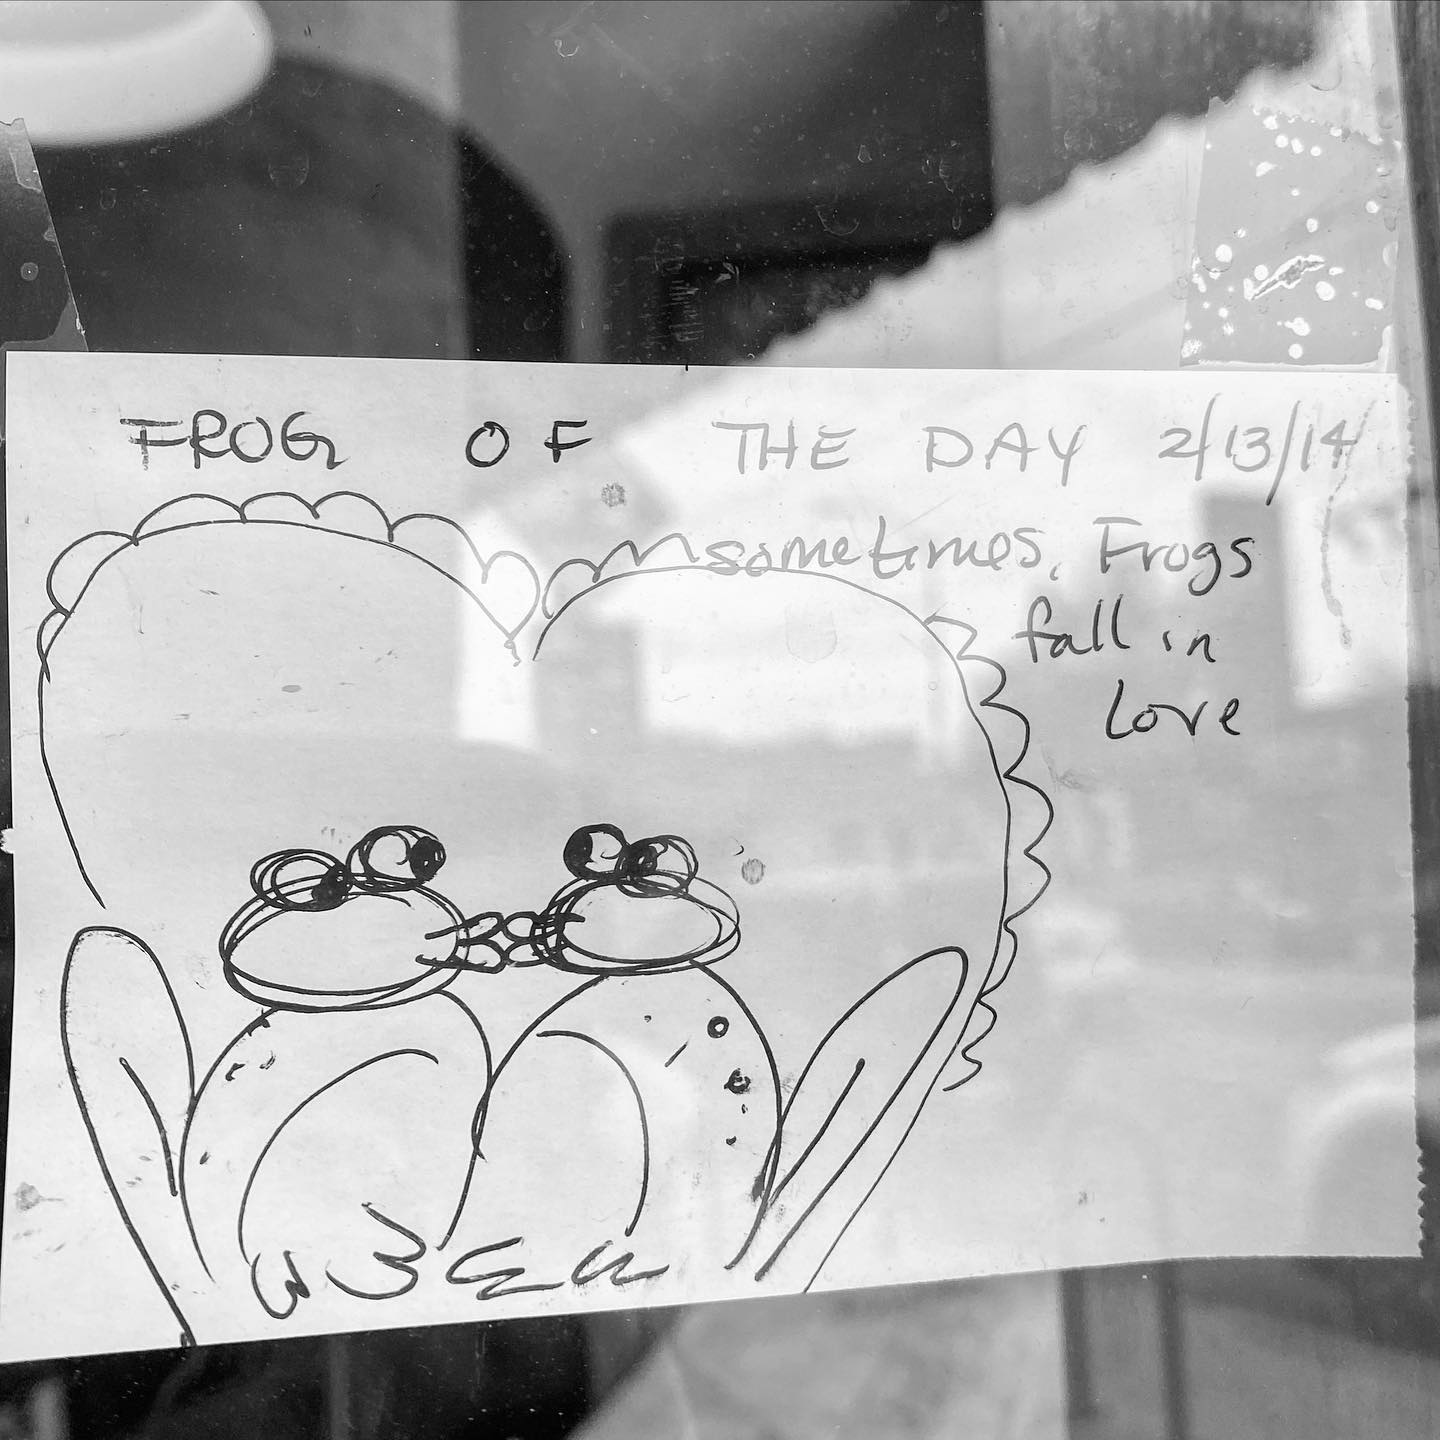 FROG OF THE DAY 2/13/14
sometimes, Frogs
fall in
Love